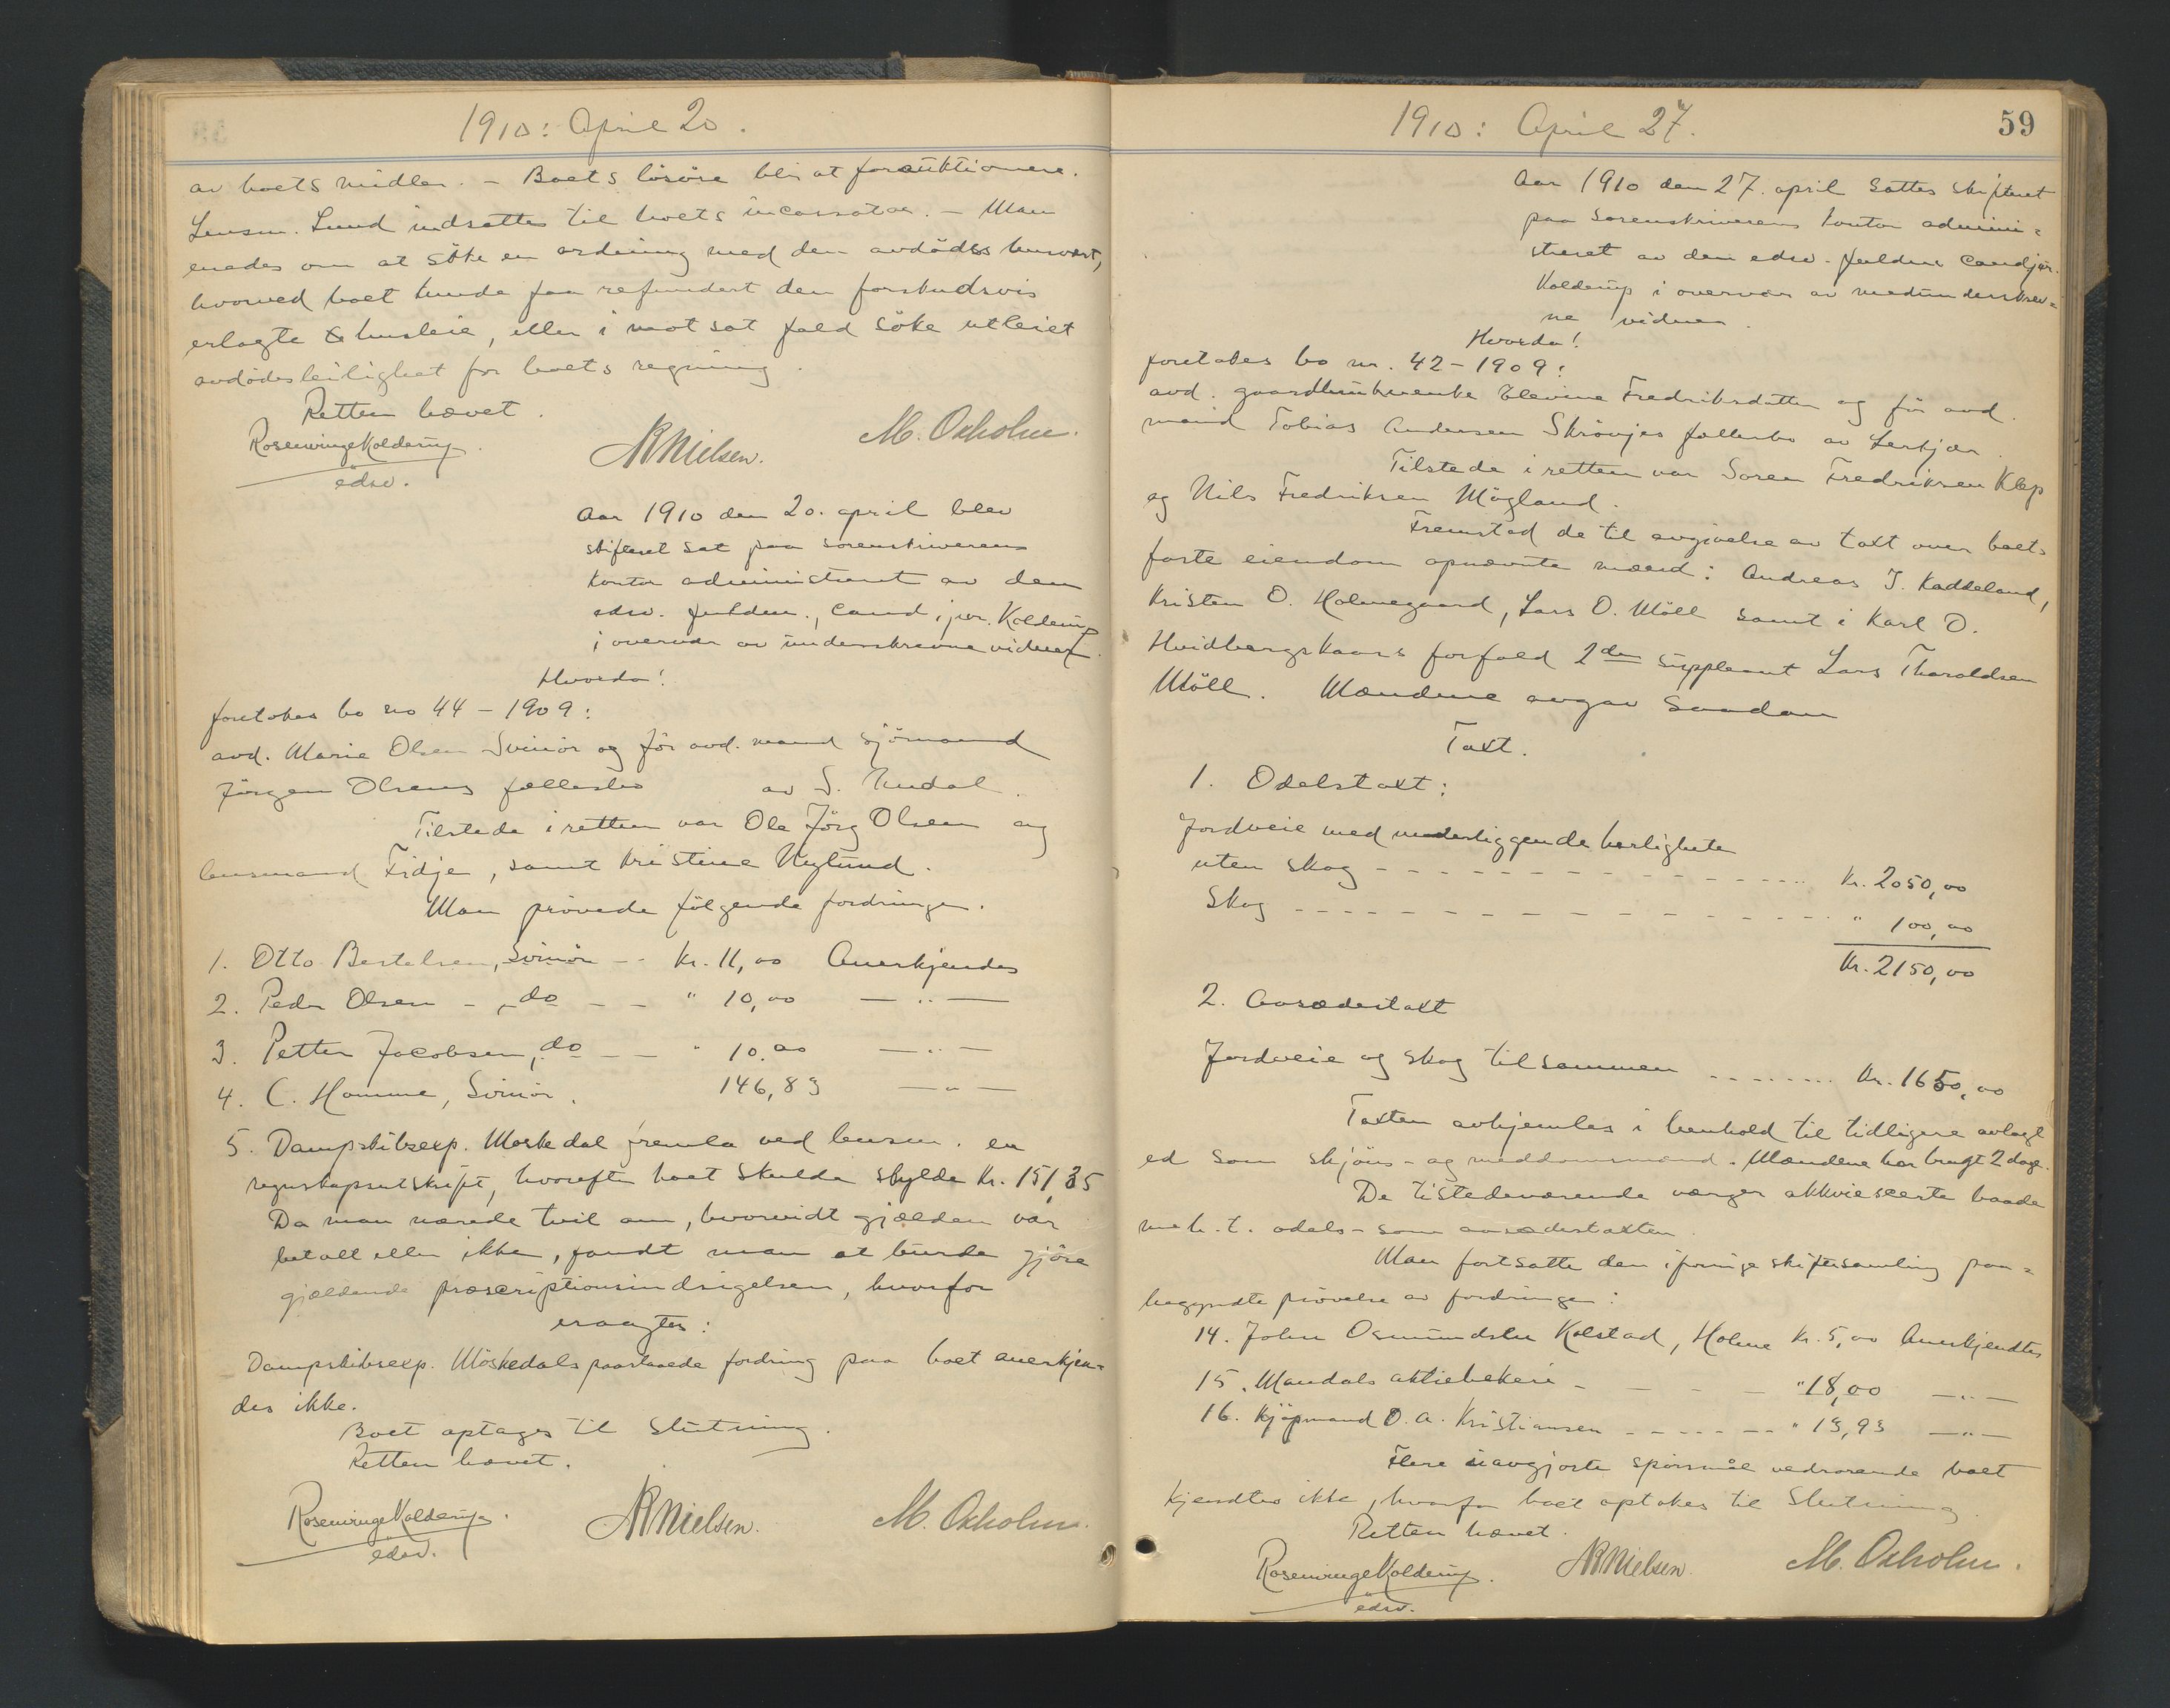 1910: April 20.
av boets midler. – Boets lösöre blir at forauktionere.
Lensm. Lund indsattes til boets incassator. – Man
enedes om at söke en ordning med den avdödes husvært,
hvorved boet kunde faa refundert den forskudsvis
erlagte husleie, eller i motsat fald söke utleiet
avdödes leilighet for boets regning.
Retten hævet.
Rosenvinge Kolderup. NB Nielsen. M. Oxholm.
edsv.
Aar 1910 den 20. april blev
skifteret sat paa sorenskriverens
kontor administreret av den
edsv. fuldm., cand. jur. Kolderup
i overvær av underskrevne vidner.
Hvorda!
foretokes bo no 44 – 1909:
avd. Marie Olsen Svinör og för avd. mand sjömand
Jörgen Olsens fællesbo av S. Undal.
Tilstede i retten var Ole Jörg Olsen og
lensmand Fidje, samt Kristine Nylund.
Man prövede fölgende fordringer.
1. Otto Bertelsen, Svinör – Kr. 11,00 Anerkjendes
2. Peder Olsen – do – – " 10,00 — " —
3. Petter Jacobsen, do – – " 10.00 — " —
4. C. Homme, Svinör. 146,83 — " —
5. Dampskibsexp. Moskedal fremla ved lensm. en
regnskapsutskrift, hvorefter boet skulde skylde Kr. 151,35
Da man nærede tvil om, hvorvidt gjælden var
betalt eller ikke, fandt man at burde gjöre
gjældende præscriptionsindsigelsen, hvorfor
eragtes:
Dampskibsexp. Möskedals paastaaede fordring paa boet anerkjen=
des ikke.
Boet optages til Slutning.
Retten hævet.
Rosenvinge Kolderup. NB Nielsen. M. Oxholm.
edsv.
1910: April 27.
59
Aar 1910 den 27. april sattes skifteret
paa sorenskriverens kontor admini=
streret av den edsv. fuldm. cand jur.
Kolderup i overvær av medunderskrev=
ne vidner.
Hvorda!
foretokes bo nr. 42 – 1909:
avd. gaardbrukerenke Elevine Fredriksdatter og för avd.
mand Tobias Andersen Skrövjes fællesbo av Lerkjær.
Tilstede i retten var Soren Fredriksen Klep
og Nils Fredriksen Mögland.
Fremstod de til avgivelse av taxt over boets
faste eiendom opnævnte mænd: Andreas J. Kaddeland,
Kristen O. Holmegaard, Lars O. Möll samt i Karl O.
Hvidbergskaars forfald 2den suppleant Lars Tharaldsen
Möll. Mændene avgav saadan
Taxt.
1. Odelstaxt:
Jordveie med underliggende herligheter
uten skog – – – – – – Kr. 2050,00
Skog – – – – – – " 100,00
Kr. 2150,00
2. Aasædestaxt
Jordveie og skog tilsammen ........ Kr. 1650,00
Taxten avhjemles i henhold til tidligere avlagt
ed som skjöns- og meddomsmænd. Mændene har brugt 2 dage.
De tilstedeværende værger akkviescerte baade
m. h. t. odels- som aasædestaxten.
Man fortsatte den i forrige skiftesamling paa=
begyndte prövelse av fordringer:
14. John Osmundsen Kolstad, Holme Kr. 5,00 Anerkjendtes
15. Mandals aktiebakeri – – – – " 18,00 — " —
16. Kjöpmand O. A. Kristiansen – – – – " 13,93 — " —
Flere uavgjorte spörsmål vedrorende boet
kjendtes ikke, hvorfor boet optokes til Slutning
Retten hævet.
Rosenvinge Kolderup. NB Nielsen. M. Oxholm.
edsv.